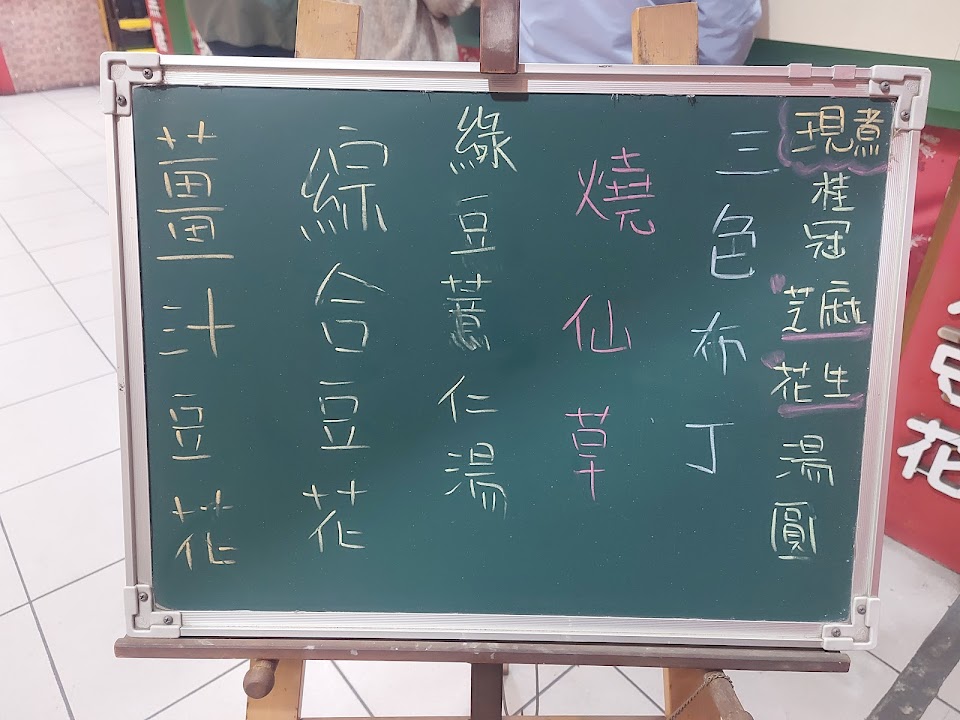 現煮
桂冠芝麻花生湯圓
三色布丁
燒仙草
綠豆薏仁湯
綜合豆花
薑汁豆花
花